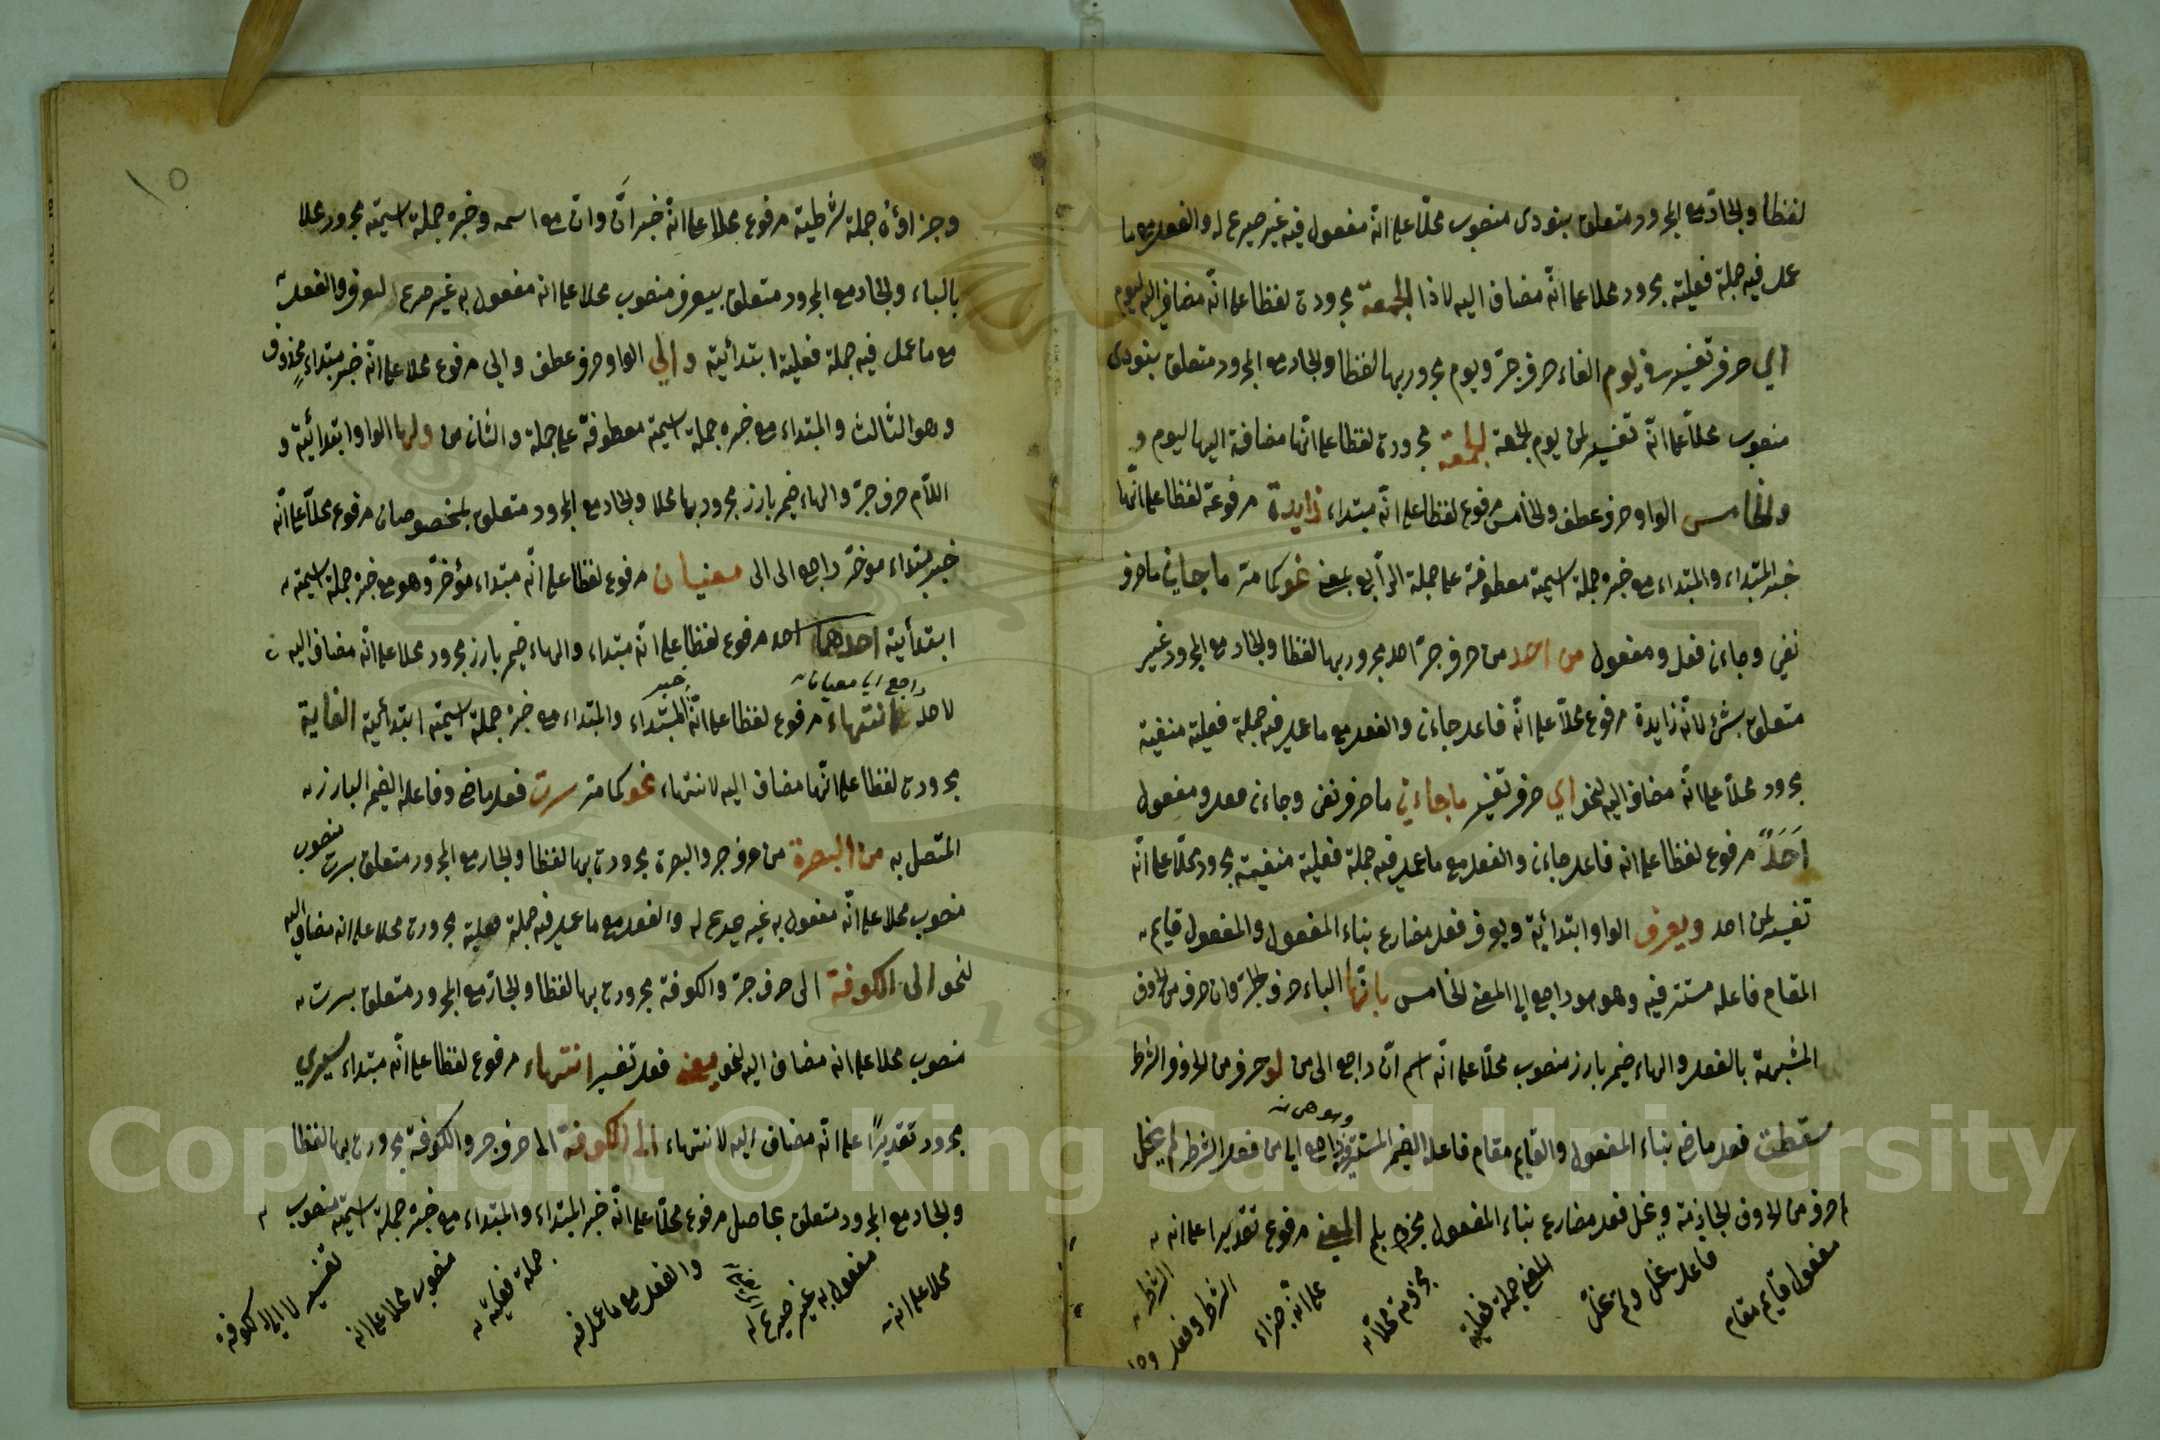 لفظا والجار مع المجرور متعلق بنودى منصوب محلا على انه مفعول فيه غير صريح له والفعل مع ما
عمل فيه جملة فعلية مجرور محلا على انه مضاف اليه لاذا الجمعة مجرورة لفظا على انه مضاف اليه ليوم
اي حرف تفسير في يوم الفاء حرف جر ويوم مجرور بها لفظا والجار مع المجرور متعلق بنودى
منصوب محلا على انه تفسير لمن يوم الجمعة الجمعة مجرورة لفظا على انها مضافة اليها ليوم و
والخامس الواو حرف عطف والخامس مرفوع لفظا على انه مبتداء زايدة مرفوعة لفظا على انها
خبر المبتداء والمبتداء مع خبره جملة اسمية معطوفة على جملة الرابع بمعنى نحو كما مر ما جاءني ما حرف
نفي وجاءن فعل ومفعول من احد من حرف جر احد مجرور بها لفظا والجار مع المجرور غير
متعلق بشئ لانه زايدة مرفوع محلا على انه فاعل جاءن والفعل مع ما عمل فيه جملة فعلية منفية
مجرور محلا على انه مضاف اليه لنحو اي حرف تفسير ما جاءني ما حرف نفي وجاءن فعل ومفعول
احد مرفوع لفظا على انه فاعل جاءن والفعل مع ما عمل فيه جملة فعلية منفية مجرور محلا على انه
تفسير لمن احد ويعرف الواو ابتدائية ويعرف فعل مضارع بناء المفعول والمفعول قايم
المقام فاعله مستتر فيه وهو هو راجع الى المعنى الخامس بانها الباء حرف الجر وان حرف من الحروف
المشبهة بالفعل والهاء ضمير بارز منصوب محلا على انه اسم ان راجع الى من لو حرف من الحروف الشرط
وهو هي
سقطت فعل ماض بناء المفعول والقايم مقام فاعله الضمير المستتر راجع الى من فعل الشرط لم يخل
لم حرف من الحروف الجازمة ويخل فعل مضارع بناء المفعول مجزوم بلم المعنى مرفوع تقديرا على انه
مفعول قايم مقام
فاعل يخل ولم يخل
المعنى جملة فعلية
مجزومة محلا
على انه جزاء
الشرط وفعل
الشرط
وجزاؤه جملة شرطية مرفوع محلا على انه خبر ان وان مع اسمه وخبره جملة اسمية مجرور محلا
بالباء والجار مع المجرور متعلق بيعرف منصوب محلا على انه مفعول به غير صريح ليعرف والفعل
مع ما عمل فيه جملة فعلية ابتدائية و الي الواو حرف عطف والى مرفوع محلا على انه خبر مبتداء محذوف
وهو الثالث والمبتداء مع خبره جملة اسمية معطوفة على جملة والثان من ولها الواو ابتدائية و
اللام حرف جر والهاء ضمير بارز مجرور بها محلا والجار مع المجرور متعلق بمخصوصان مرفوع محلا على انه
خبر مبتداء موخر راجع الى الى معنيان مرفوع لفظا على انه مبتداء مؤخر وهو مع خبره جملة اسمية
ابتدأية احدهما احد مرفوع لفظا على انه مبتداء والهاء ضمير بارز مجرور محلا على انه مضاف اليه
راجع الى معنيان
خبر
لاحد انتهاء مرفوع لفظا على انه المبتداء والمبتداء مع خبره جملة اسمية ابتدائية الغاية
مجرورة لفظا على انها مضاف اليه لانتهاء نحو كما مر سرت فعل ماض وفاعله الضمير البارز
المتصل به من البصرة من حرف جر والبصرة مجرورة بها لفظا والجار مع المجرور متعلق بسرت منصوب
منصوب محلا على انه مفعول به غير صريح له والفعل مع ما عمل فيه جملة فعلية مجرورة محلا على انه مضاف اليه
لنحو الى الكوفة الى حرف جر والكوفة مجرورة بها لفظا والجار مع المجرور متعلق بسرت
منصوب محلا على انه مضاف اليه لنحو بمعنى فعل تفسير انتهاء مرفوع لفظا على انه مبتداء سيري
مجرور تقديرا على انه مضاف اليه لانتهاء الى الكوفة الى حرف جر والكوفة مجرورة بها لفظا
والجار مع المجرور متعلق بحاصل مرفوع محلا على انه خبر المبتداء والمبتداء مع خبره جملة اسمية منصوب
محلا على انه
مفعول به غير صريح له
والفعل مع ما عمل فيه
جملة فعلية
منصوب محلا على انه
تفسير لا الى الكوفة
١٥
Copyright © King Saud University
1957